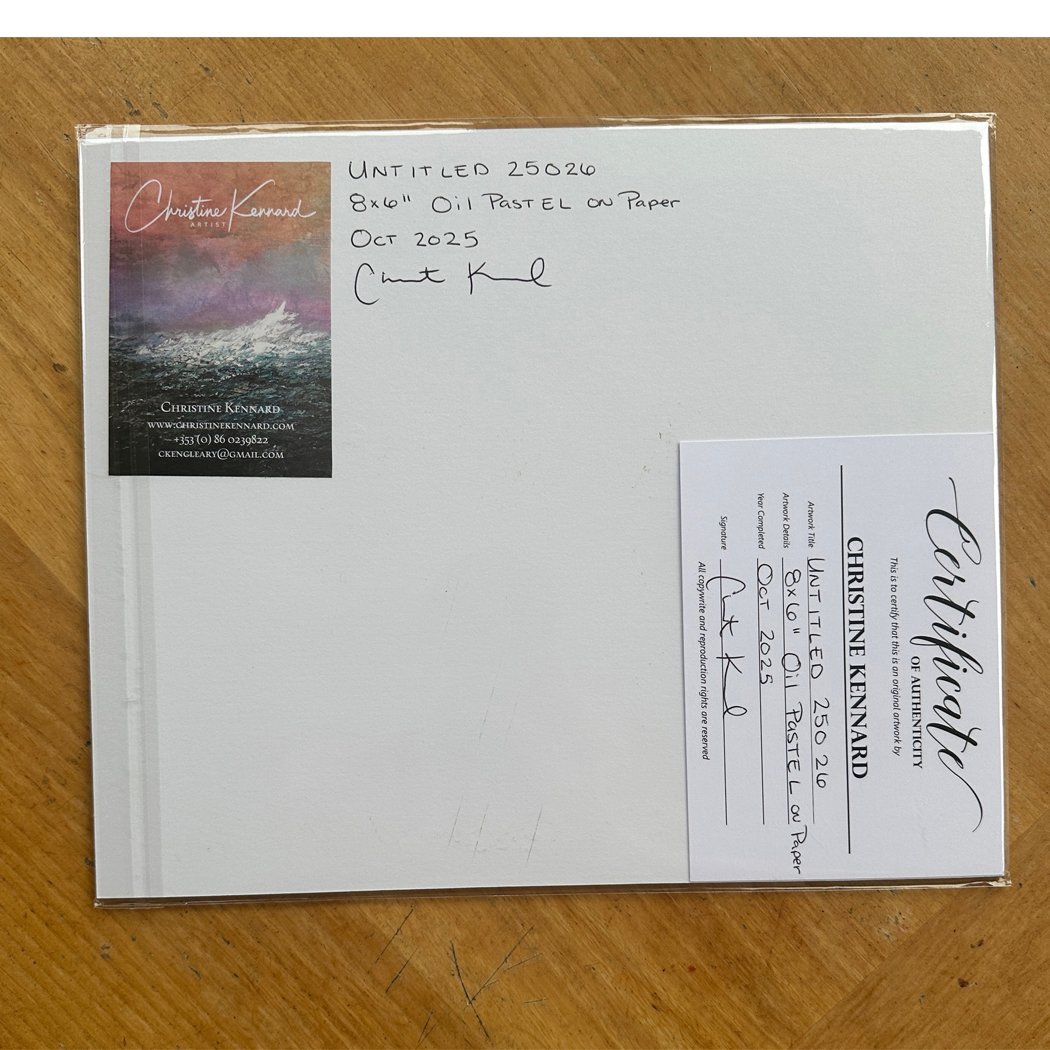 Christine Kennard
ARTIST
CHRISTINE KENNARD
WWW.CHRISTINEKENNARD.COM
+353 (0) 86 0239822
CKENGLEARY@GMAIL.COM
UNTITLED 25026
8x6" Oil PASTEL ON Paper
OCT 2025
Certificate
OF AUTHENTICITY
This is to certify that this is an original artwork by
CHRISTINE KENNARD
Artwork Title UNTITLED 25026
Artwork Details 8x6" Oil PASTEL ON Paper
Year Completed OCT 2025
Signature
All copywrite and reproduction rights are reserved